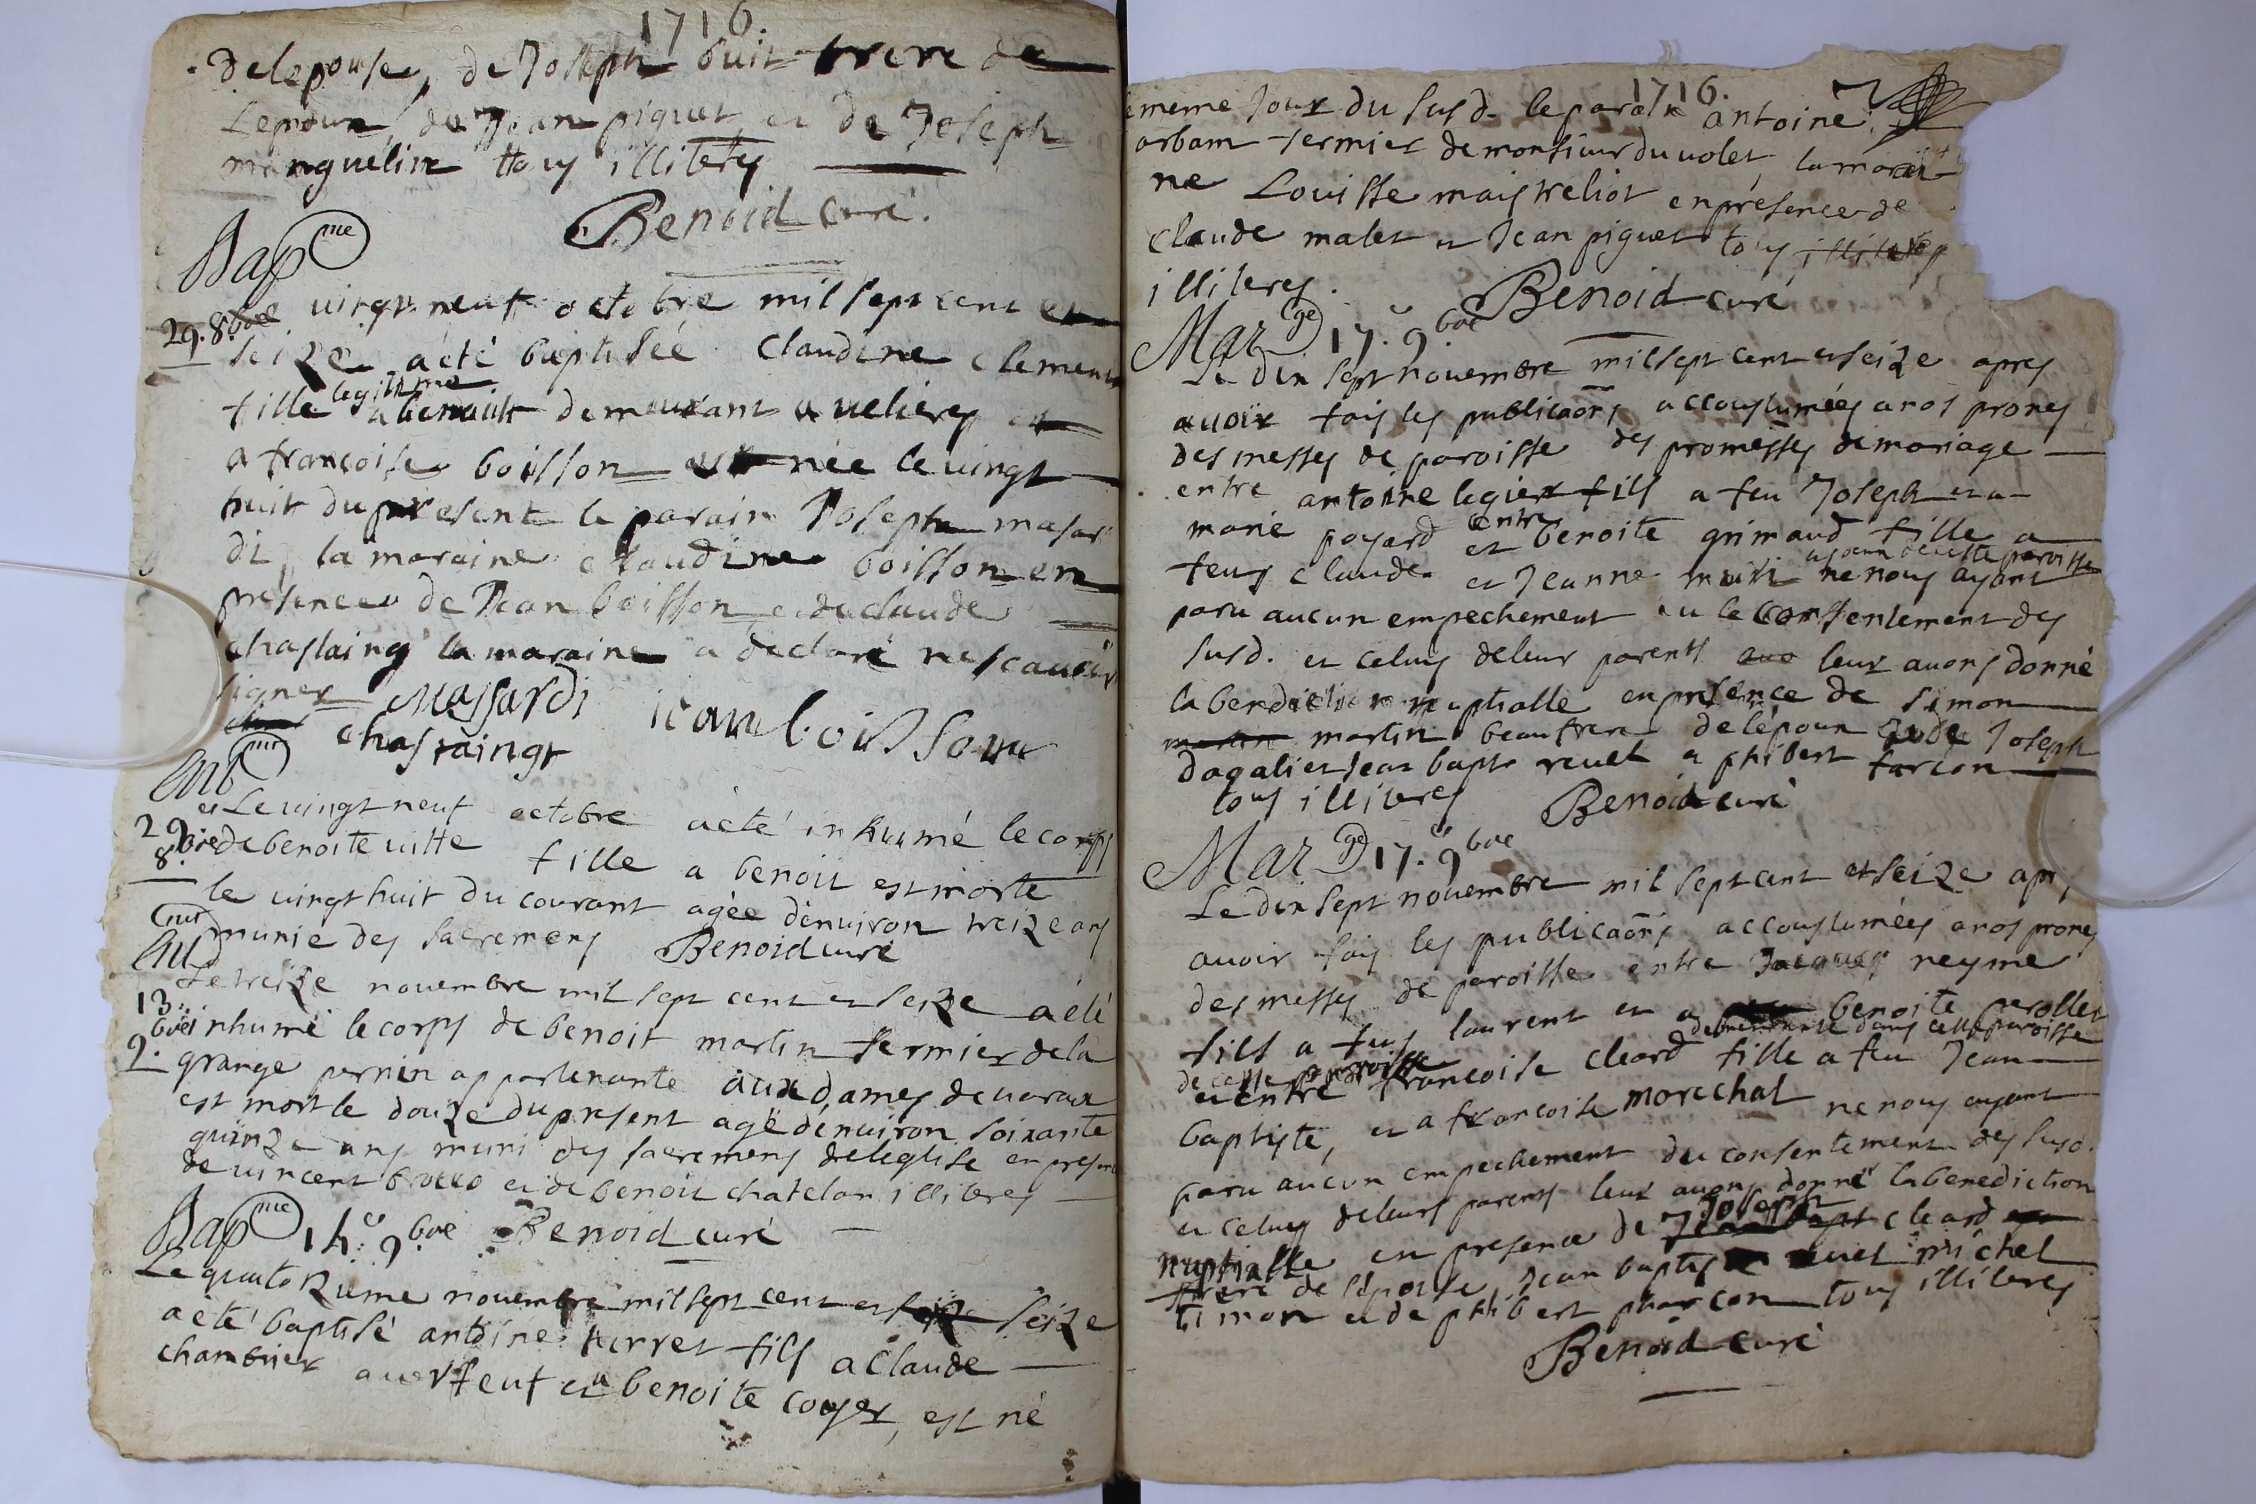 1716.
de lepouse, de Joseph buit frere de
Lepoux, de Jean piguet et de Joseph
manguelin tous illiterés
Benoid curé.
Bap me
29. 8.bre vingt neuf octobre mil sept cent et
seize a été baptisée Claudine clement
fille legitime a benoit demeurant a uelieres et
a francoise boisson est née le vingt
huit du present le parain Joseph masar
di, la maraine claudine boisson en
presence de Jean boisson et de claude
chastaing la maraine a declaré ne scauoir
signer Massardi jean boissonn
chastaingt
Ent mt
29 8.bre et Le vingt neuf octobre a été inhumé le corps
de benoite uitte fille a benoit est morte
le vingt huit du courant agée denuiron treize ans
munie des sacremens Benoid curé
Ent mt
13. 9.bre Le treize novembre mil sept cent et seize a été
inhumé le corps de benoit martin fermier de la
grange pernin appartenante aux dames de uaraux
est mort le douze du present agé denuiron soixante
quinze ans muni des sacremens de leglise en presence
de uincent et de benoit chatelan illiteres
Bap me 14.e 9.bre Benoid curé
Le quatorzieme novembre mil sept cent et seize seize
a été baptisé antoine perret fils a Claude
chambrier a uerfeuf et a benoite coyer, est né
1716.
le meme Jour du susd. le parain antoine
arbam fermier de monsieur du uolet, la marai
ne Louisse maistreliot en présence de
Claude malet et Jean piguet tous illiteres
illiteres.
Benoid curé
Mar ge 17.e 9.bre
Le dix sept novembre mil sept cent et seize apres
auoir fais les publicaõns accoustumées a nos prones
des messes de paroisse des promesses de mariage
entre antoine legier fils a feu Joseph et a
marie poyard et entre benoite grimaud fille a
feus claude et Jeanne muri de cette paroisse ne nous ayant
paru aucun empechement uu le consentement des
susd. et celuy de leur parents leur auons donné
la bendiction nuptialle en presence de simon
martin beaufrere de lépoux et de Joseph
dagalier Jean bapt. reuel et phibert farcon
tous illiteres Benoid curé
Mar ge 17.e 9bre
Le dix sept novembre mil sept cent et seize apres
auoir fais les publicaõns accoustumées a nos prones
des messes de paroisse entre Jacques neyme
fils a feu laurent et a benoite perollet
de cette paroisse demeurante dans cette paroisse
et entre francoise cleard fille a feu Jean
baptiste, et a francoise marechal ne nous ayant
paru aucun empechement du consentement des susd.
et celuy de leurs parents leur auons donné la benediction
nuptialle en presence de Joseph cleard
frere de l'epouse, Jean baptiste reuel michel
timon et de phibert pharcon tous illiteres
Benoid curé